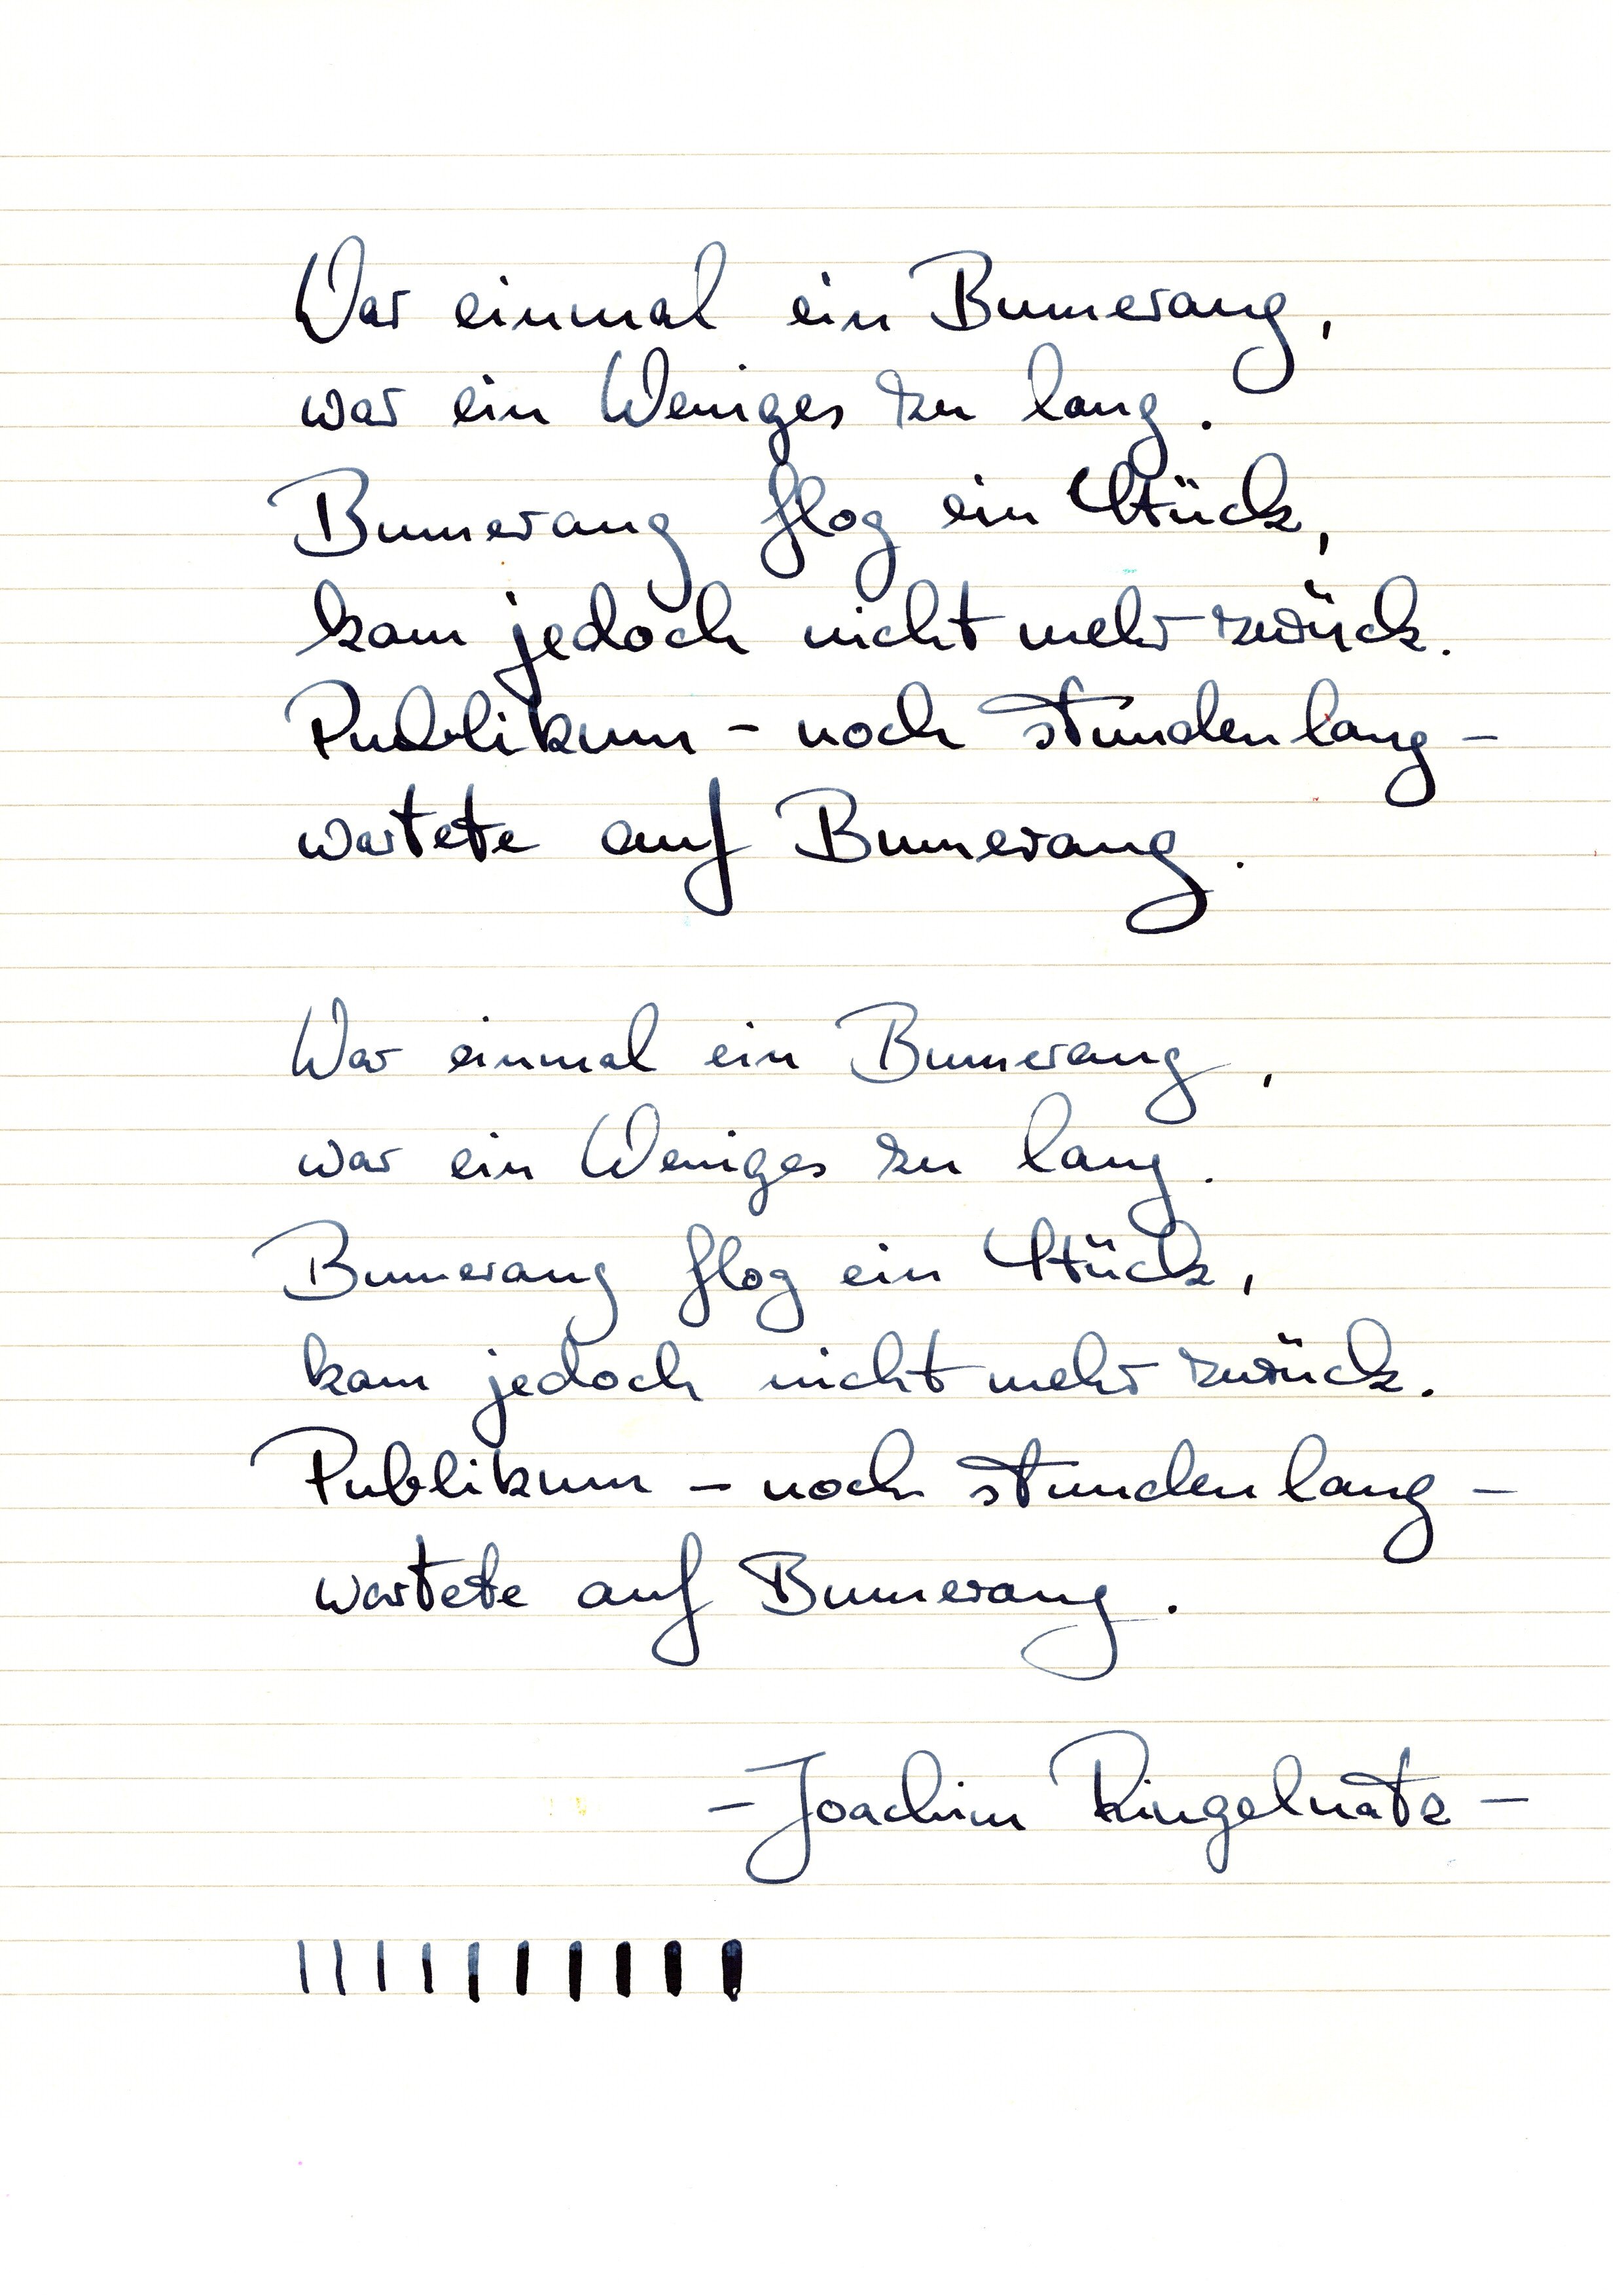 War einmal ein Bumerang,
war ein Weniges zu lang.
Bumerang flog ein Stück,
kam jedoch nicht mehr zurück.
Publikum – noch stundenlang –
wartete auf Bumerang.
War einmal ein Bumerang,
war ein Weniges zu lang.
Bumerang flog ein Stück,
kam jedoch nicht mehr zurück.
Publikum – noch stundenlang –
wartete auf Bumerang.
– Joachim Ringelnatz –